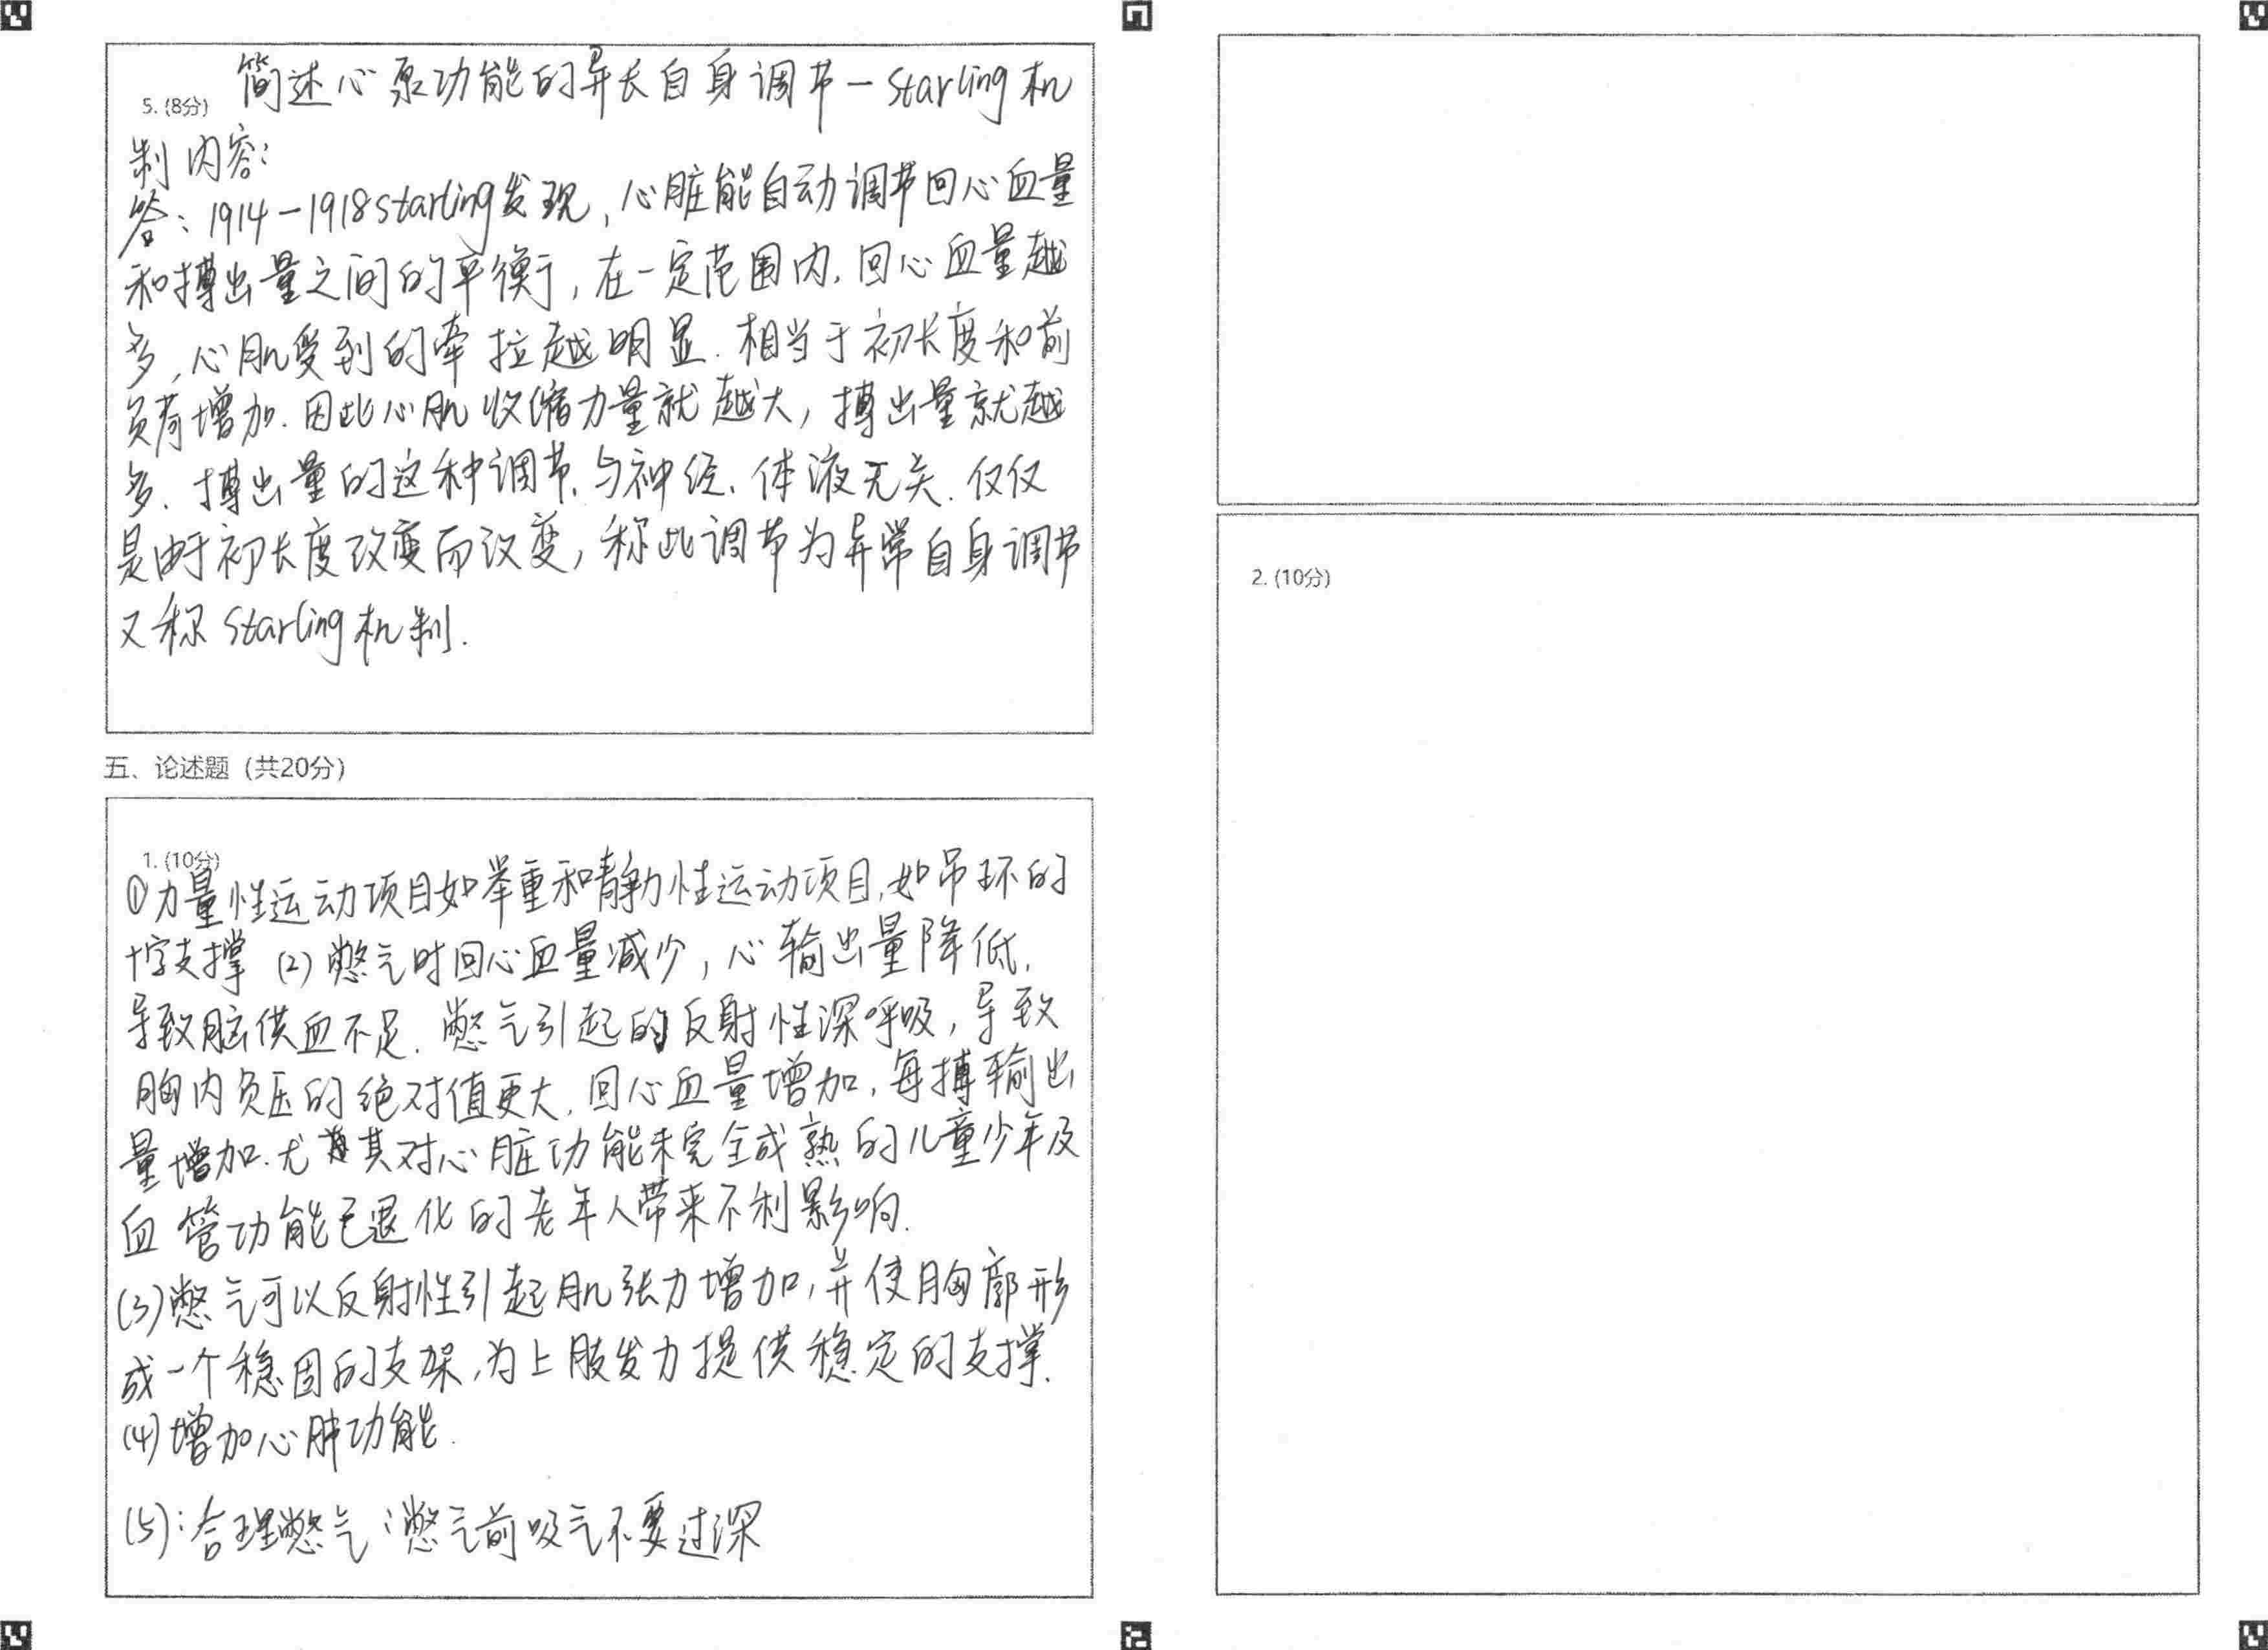 5. (8分) 简述心泵功能的异长自身调节—Starling机
制内容:
答: 1914-1918 Starling发现, 心脏能自动调节回心血量
和搏出量之间的平衡, 在一定范围内, 回心血量越
多, 心肌受到的牵拉越明显. 相当于初长度和前
负荷增加. 因此心肌收缩力量就越大, 搏出量就越
多. 搏出量的这种调节, 与神经、体液无关. 仅仅
是由于初长度改变而改变, 称此调节为异常自身调节
又称 Starling机制.
五、论述题 (共20分)
1. (10分)
①力量性运动项目如举重和静力性运动项目, 如吊环的
十字支撑 (2) 憋气时回心血量减少, 心输出量降低.
导致脑供血不足. 憋气引起的反射性深呼吸, 导致
胸内负压的绝对值更大, 回心血量增加, 每搏输出
量增加. 尤其对心脏功能未完全成熟的儿童少年及
血管功能已退化的老年人带来不利影响.
(3) 憋气可以反射性引起肌张力增加, 并使胸廓形
成一个稳固的支架, 为上肢发力提供稳定的支撑.
(4) 增加心肺功能.
(5): 合理憋气: 憋气前吸气不要过深
2. (10分)